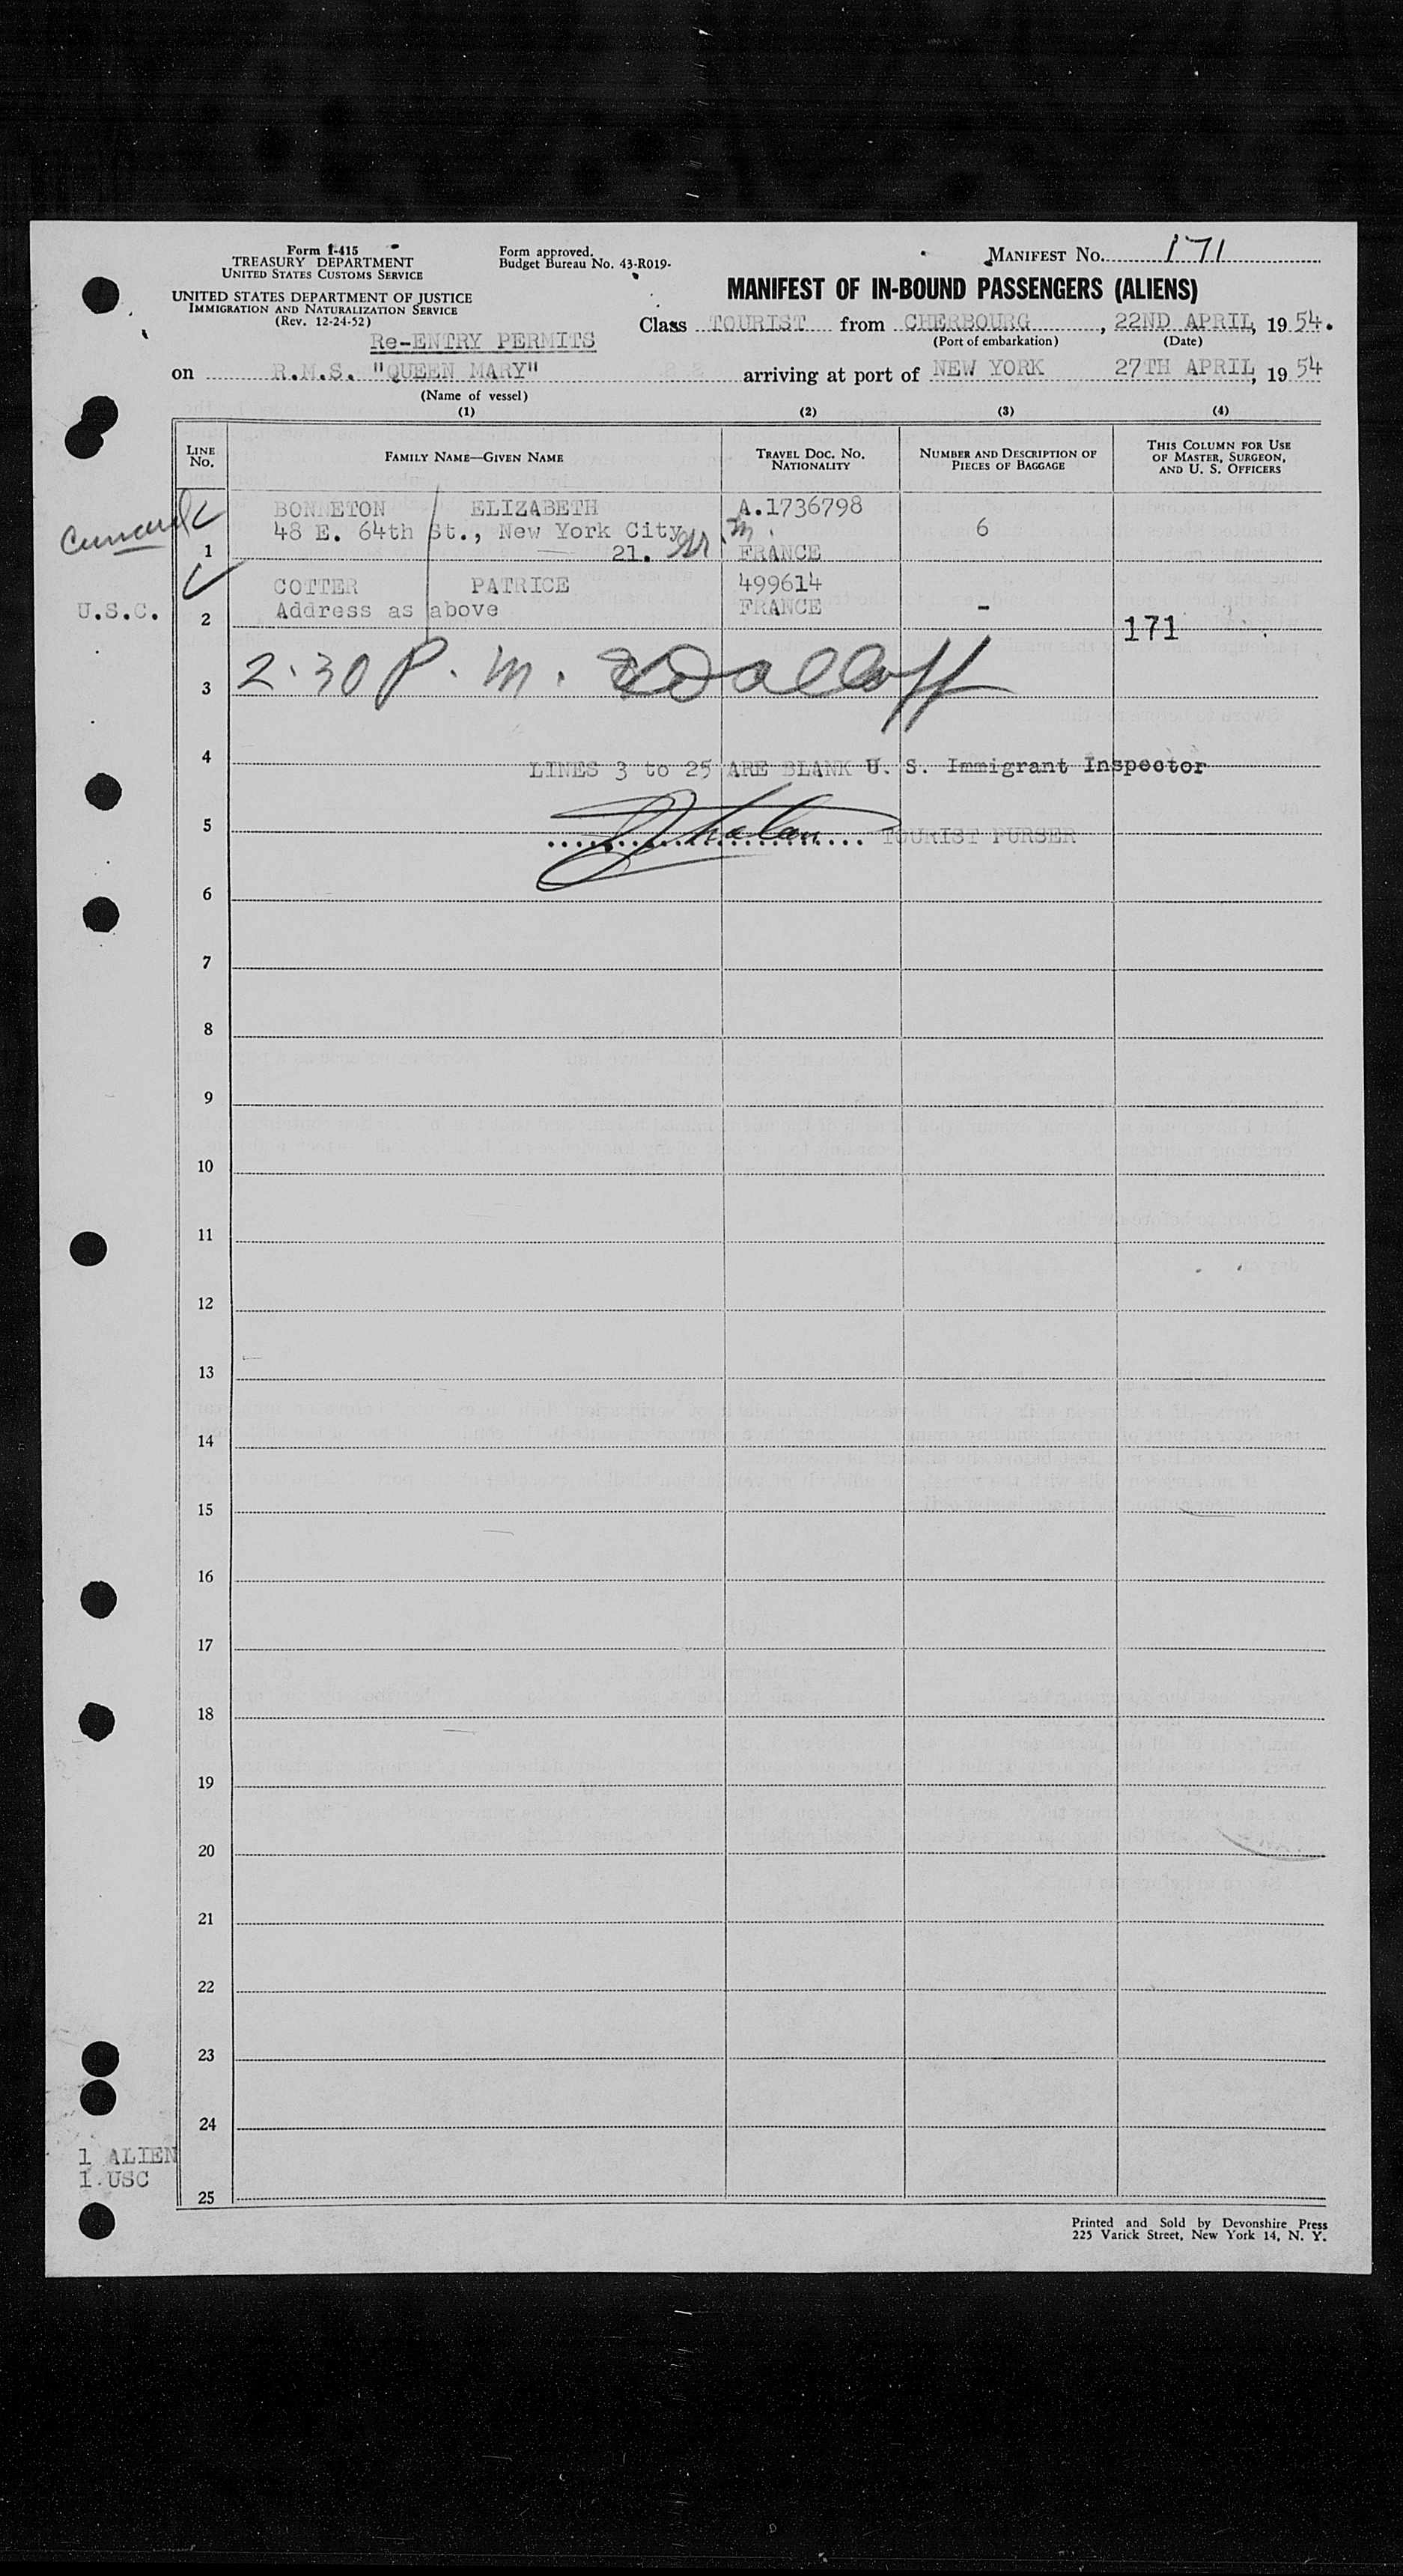 Form I-415
TREASURY DEPARTMENT
UNITED STATES CUSTOMS SERVICE
Form approved.
Budget Bureau No. 43-R019-
MANIFEST No. 171
UNITED STATES DEPARTMENT OF JUSTICE
IMMIGRATION AND NATURALIZATION SERVICE
(Rev. 12-24-52)
MANIFEST OF IN-BOUND PASSENGERS (ALIENS)
Class TOURIST from CHERBOURG, 22ND APRIL, 1954.
(Port of embarkation) (Date)
Re-ENTRY PERMITS
on R.M.S. "QUEEN MARY" arriving at port of NEW YORK 27TH APRIL, 1954
(Name of vessel)
(1) (2) (3) (4)
LINE No. FAMILY NAME—GIVEN NAME TRAVEL DOC. NO. NATIONALITY NUMBER AND DESCRIPTION OF PIECES OF BAGGAGE THIS COLUMN FOR USE OF MASTER, SURGEON, AND U. S. OFFICERS
BONNETON ELIZABETH A.1736798
Cunard 48 E. 64th St., New York City 6
1 21. FRANCE
COTTER PATRICE 499614
U.S.C. 2 Address as above FRANCE -
171
3 2.30 P.m.
4 LINES 3 to 25 ARE BLANK U. S. Immigrant Inspector
5 TOURIST PURSER
6
7
8
9
10
11
12
13
14
15
16
17
18
19
20
21
22
23
24
1 ALIEN
1 USC
25
Printed and Sold by Devonshire Press
225 Varick Street, New York 14, N. Y.